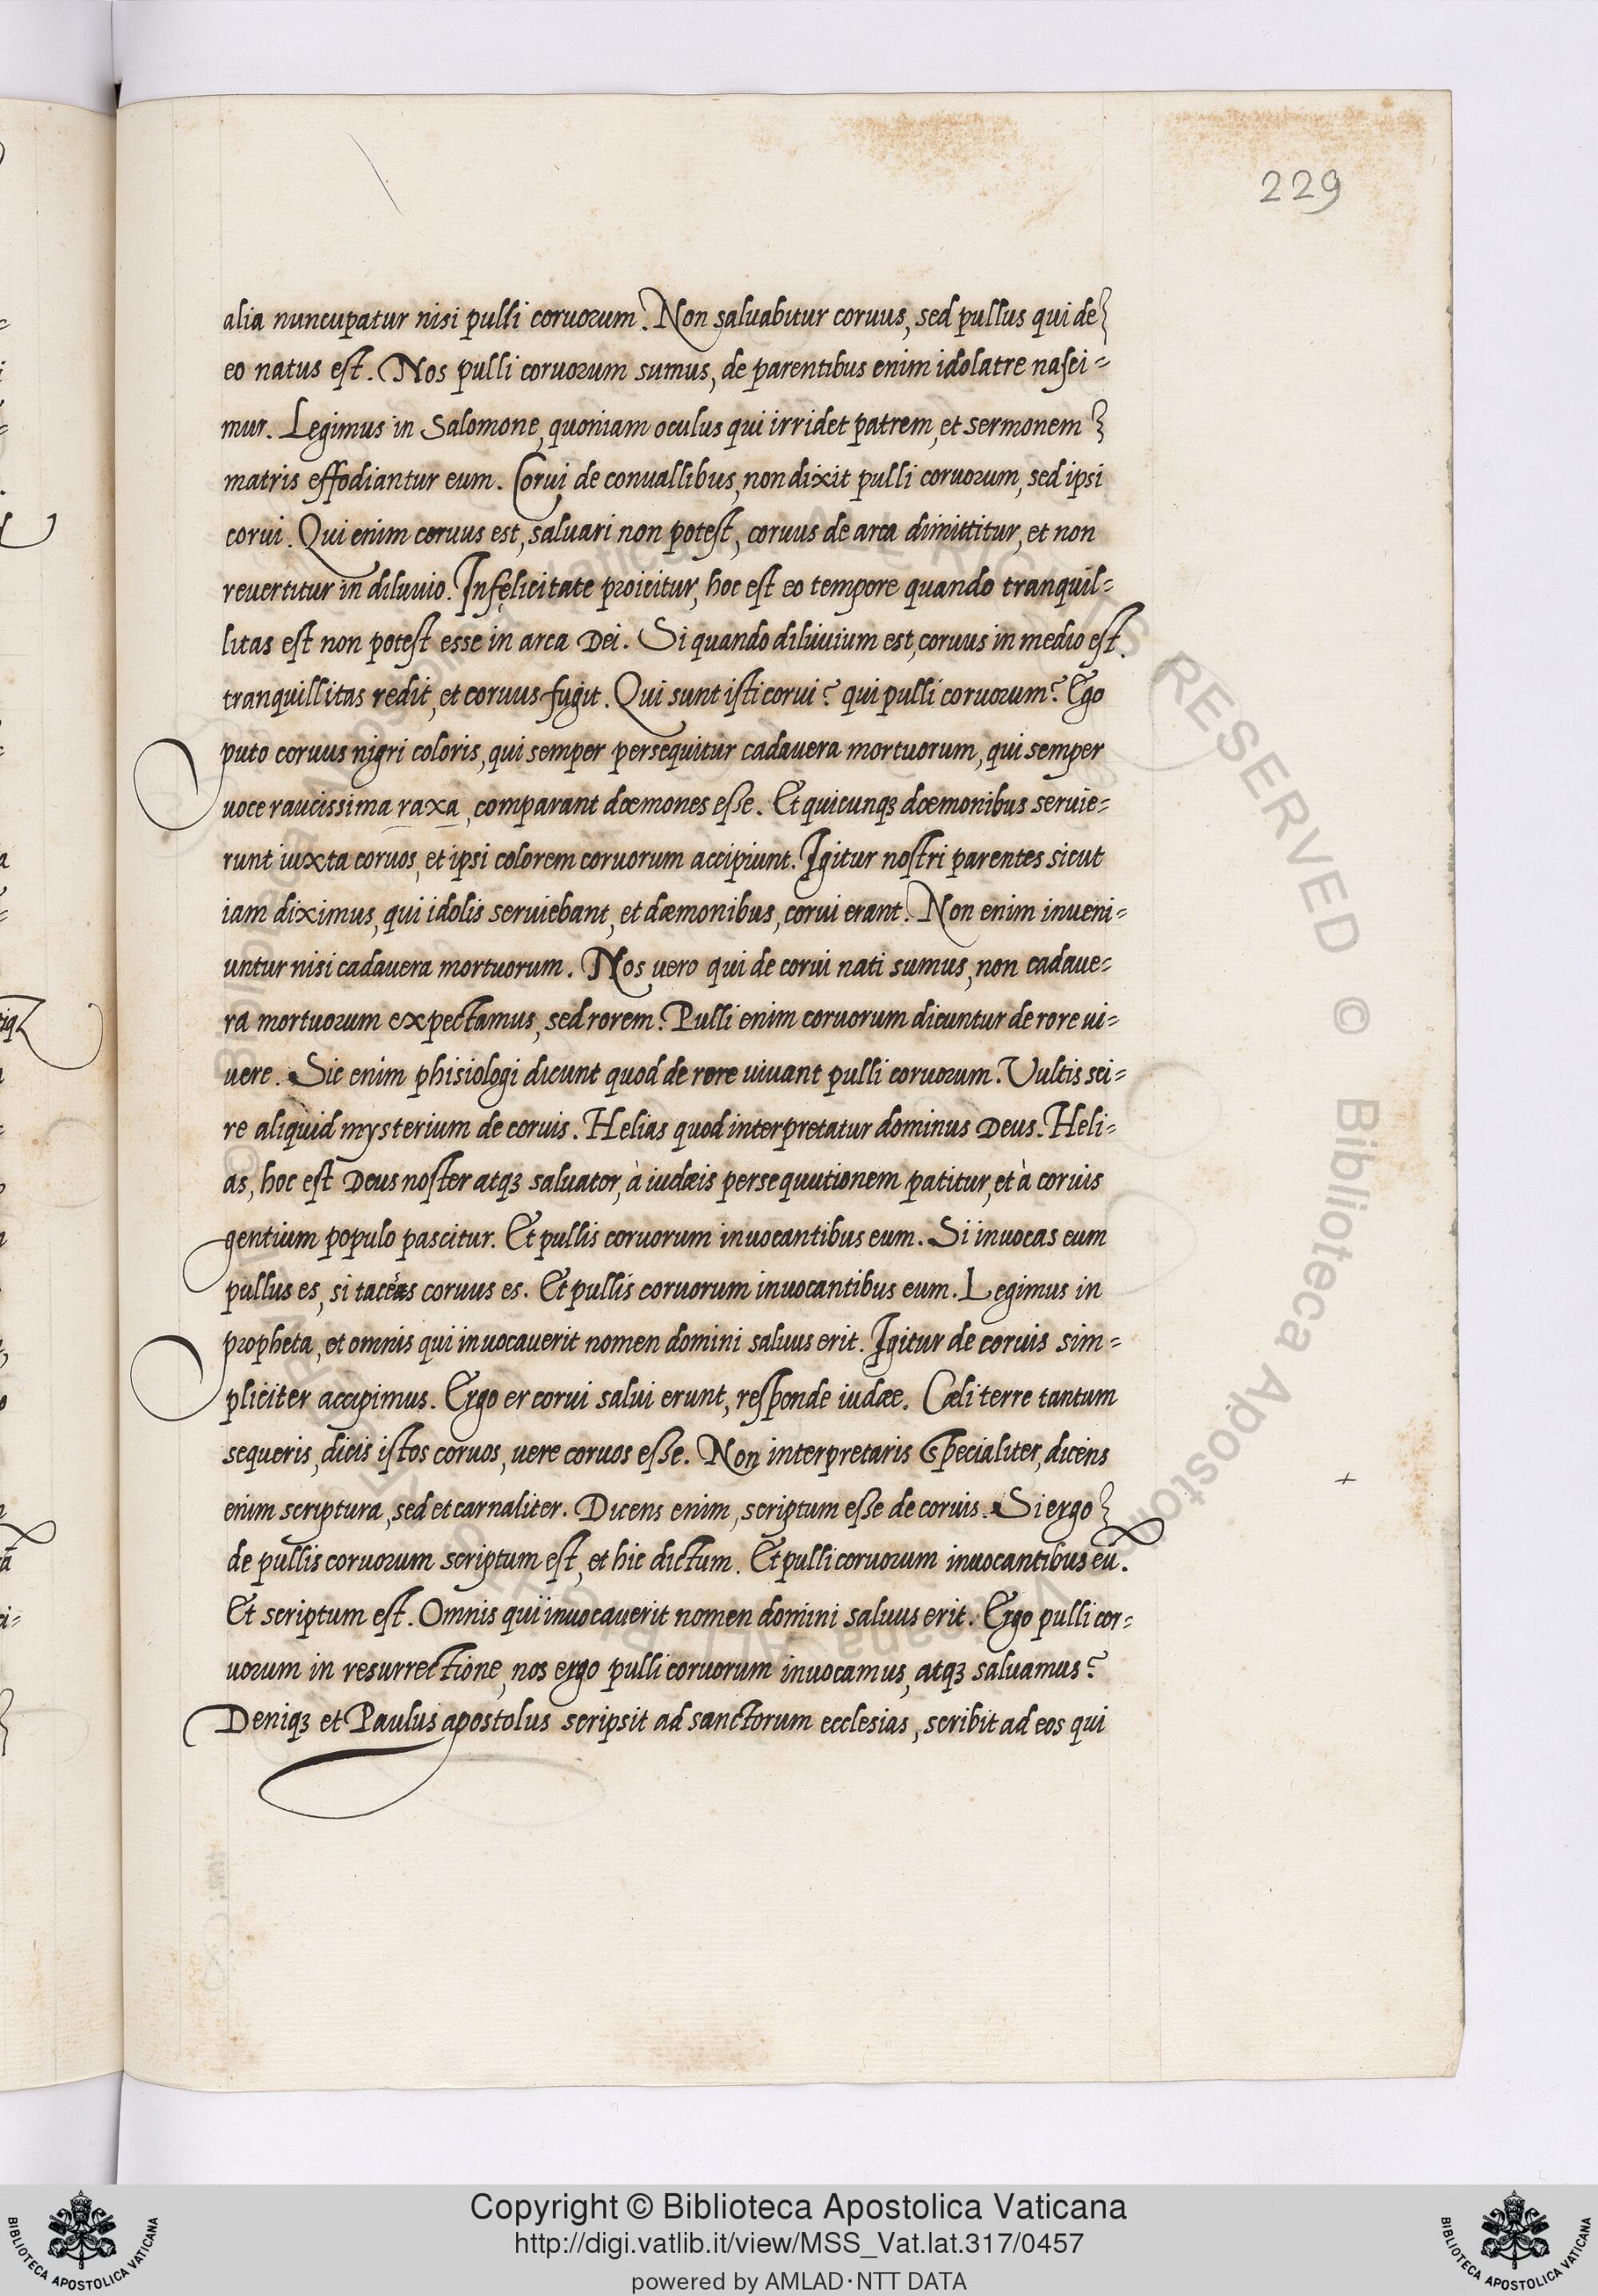 229
alia nuncupatur nisi pulli coruorum. Non saluabitur coruus, sed pullus qui de
eo natus est. Nos pulli coruorum sumus, de parentibus enim idolatre nasci=
mur. Legimus in Salomone, quoniam oculus qui irridet patrem, et sermonem
matris effodiantur eum. Corui de conuallibus, non dixit pulli coruorum, sed ipsi
corui. Qui enim coruus est, saluari non potest, coruus de arca dimittitur, et non
reuertitur in diluuio. Infęlicitate proicitur, hoc est eo tempore quando tranquil=
litas est non potest esse in arca Dei. Si quando diluuium est, coruus in medio est.
tranquillitas redit, et coruus fugit. Qui sunt isti corui? qui pulli coruorum? Ego
puto coruus nigri coloris, qui semper persequitur cadauera mortuorum, qui semper
uoce raucissima raxa, comparant dæmones esse. Et quicunqꝫ dæmonibus seruie=
runt iuxta coruos, et ipsi colorem coruorum accipiunt. Igitur nostri parentes sicut
iam diximus, qui idolis seruiebant, et dæmonibus, corui erant. Non enim inueni=
untur nisi cadauera mortuorum. Nos uero qui de corui nati sumus, non cadaue=
ra mortuorum expectamus, sed rorem. Pulli enim coruorum dicuntur de rore ui=
uere. Sic enim phisiologi dicunt quod de rore uiuant pulli coruorum. Vultis sci=
re aliquid mysterium de coruis. Helias quod interpretatur dominus Deus. Heli=
as, hoc est Deus noster atqꝫ saluator, à iudæis persequutionem patitur, et à coruis
gentium populo pascitur. Et pullis coruorum inuocantibus eum. Si inuocas eum
pullus es, si taces coruus es. Et pullis coruorum inuocantibus eum. Legimus in
propheta, et omnis qui inuocauerit nomen domini saluus erit. Igitur de coruis sim=
pliciter accipimus. Ergo er corui salui erunt, responde iudæe. Cæli terre tantum
sequeris, dicis istos coruos, uere coruos esse. Non interpretaris specialiter, dicens
enim scriptura, sed et carnaliter. Dicens enim, scriptum esse de coruis. Si ergo
de pullis coruorum scriptum est, et hic dictum. Et pulli coruorum inuocantibus eū.
Et scriptum est. Omnis qui inuocauerit nomen domini saluus erit. Ergo pulli cor=
uorum in resurrectione, nos ergo pulli coruorum inuocamus, atqꝫ saluamus?
Deniqꝫ et Paulus apostolus scripsit ad sanctorum ecclesias, scribit ad eos qui
Copyright © Biblioteca Apostolica Vaticana
http://digi.vatlib.it/view/MSS_Vat.lat.317/0457
powered by AMLAD·NTT DATA
BIBLIOTECA APOSTOLICA VATICANA
BIBLIOTECA APOSTOLICA VATICANA